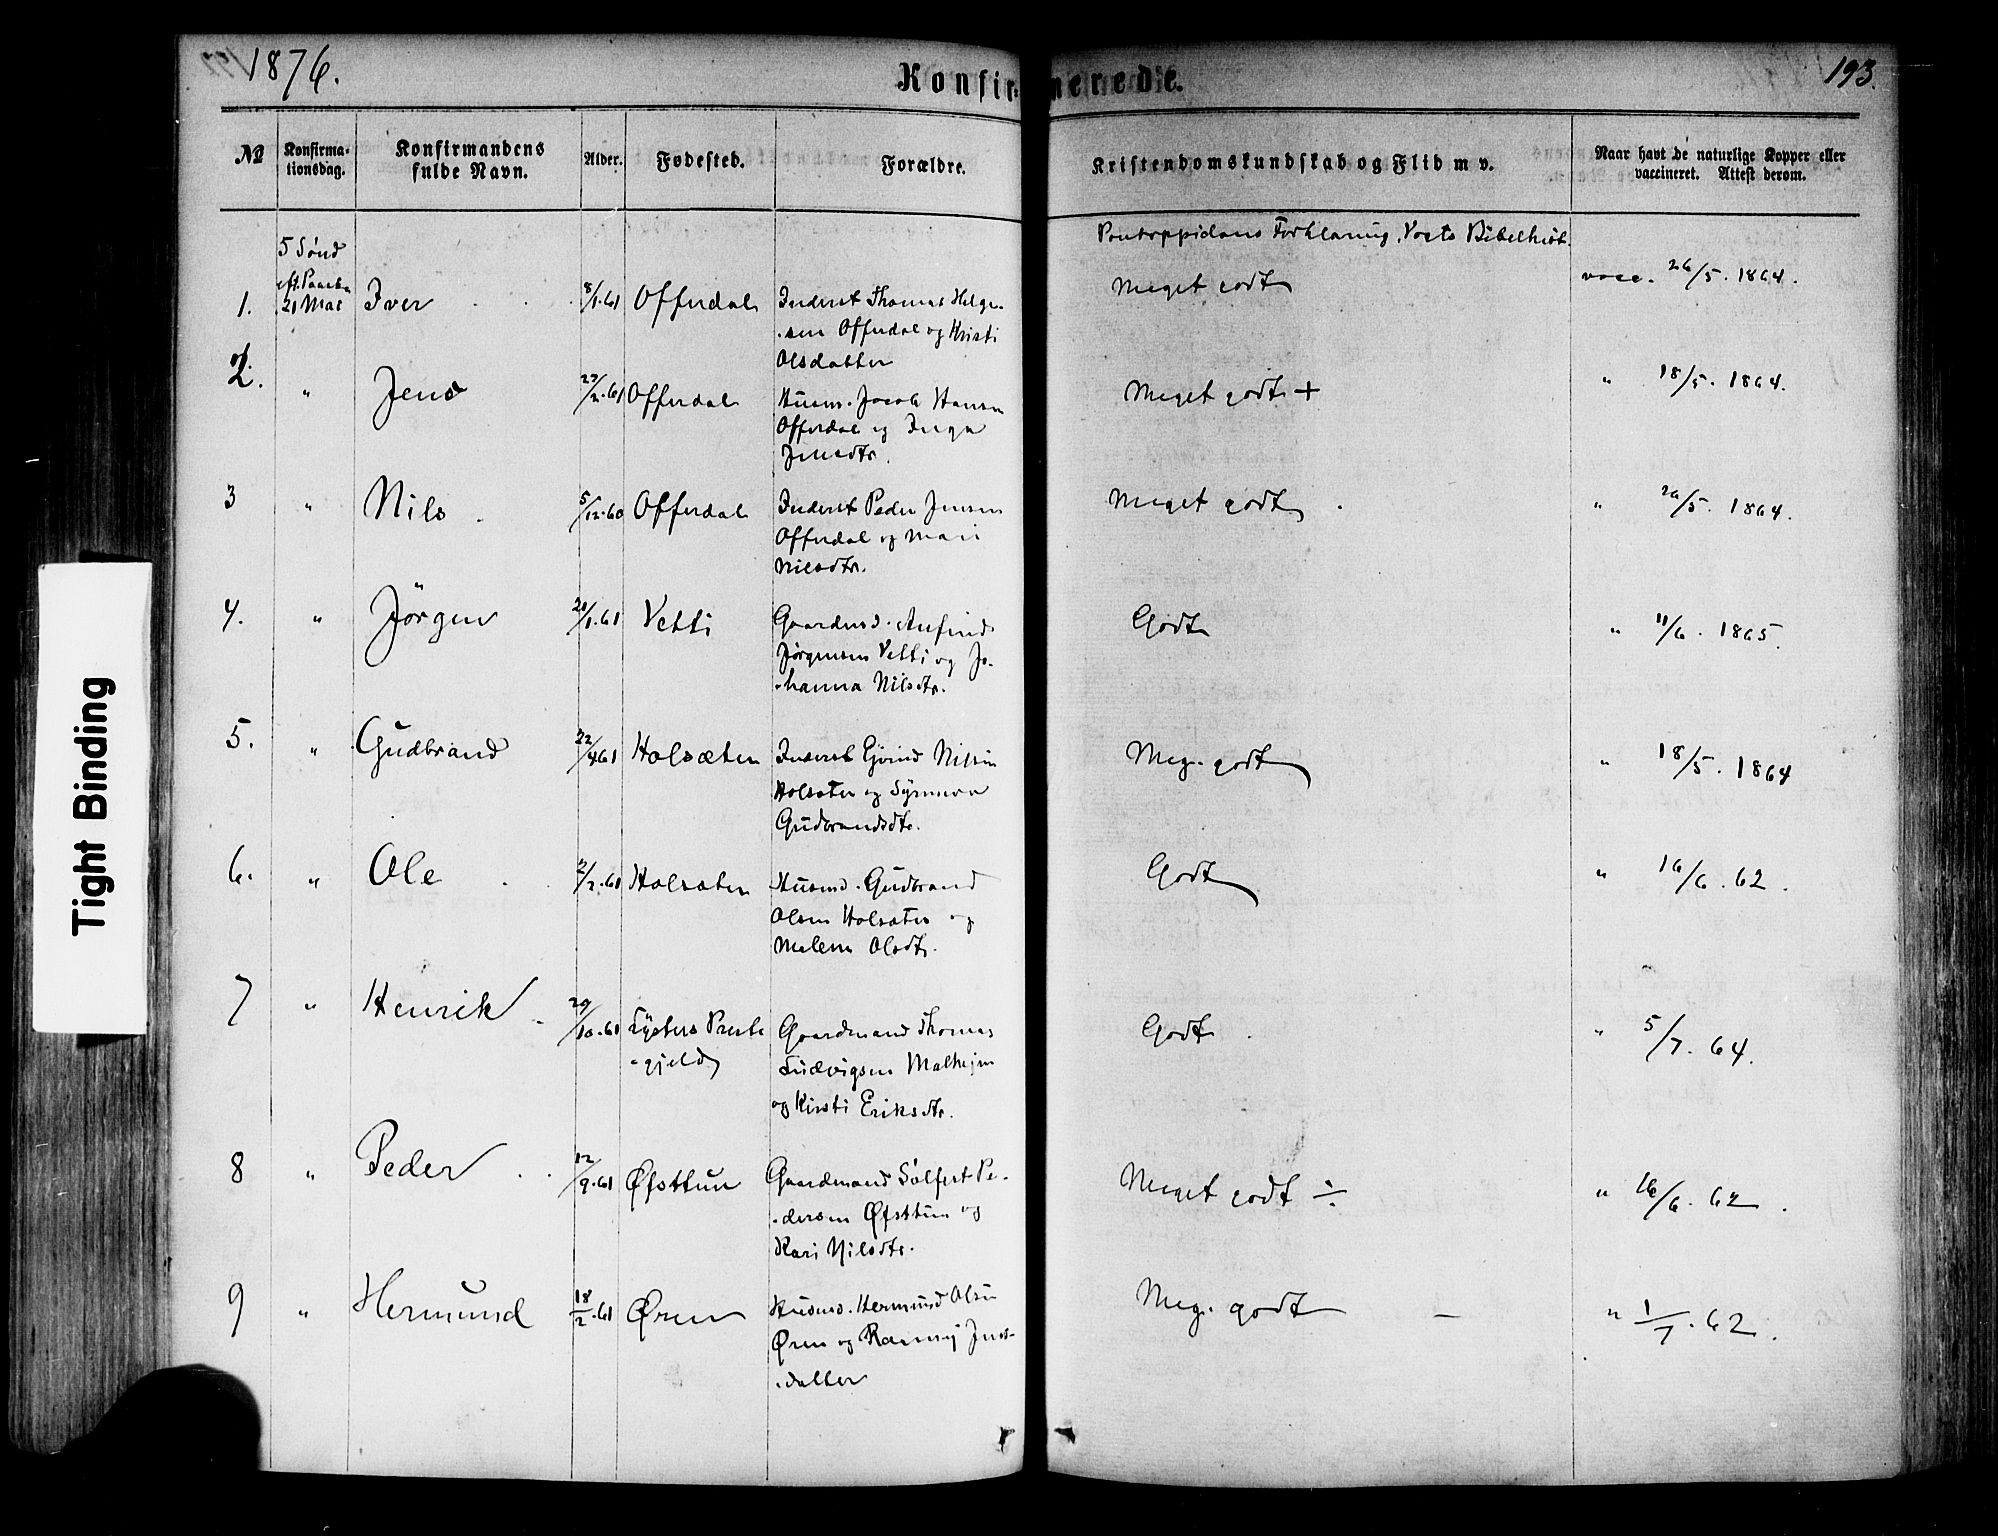 1876.
Konfirmerede.
193.
№
Konfirma-
tionsdag.
Konfirmandens
fulde Navn.
Alder.
Fødested.
Forældre.
Kristendomskundskab og Flid m v.
Naar havt de naturlige Kopper eller
vaccineret. Attest derom.
Pontoppidans Forklaring, Vogts Bibelhist.
1.
5 Sønd
eft. Paaske
21 Mai
Iver
8/1.61
Offerdal
Inderst Thomas Helge-
sen Offerdal og Kristi
Olsdatter
Meget godt
vacc. 26/5. 1864.
2.
"
Jens
27/2.61
Offerdal
Husm. Jacob Hansen
Offerdal og Inga
Jensdtr.
Meget godt +
" 18/5. 1864.
3
"
Nils
5/12.60
Offerdal
Inderst Peder Jensen
Offerdal og Mari
Nilsdtr.
Meget godt
" 26/5. 1864.
4.
"
Jörgen
20/1.61
Vetti
Gaardmd. Anfind
Jørgensen Vetti og Jo-
hanna Nilsdtr.
Godt
" 11/6. 1865.
5.
"
Gudbrand
22/4 61
Holsæter
Inderst Ejvind Nilsen
Holsæter og Synneva
Gudbrandsdtr.
Meg. godt
" 18/5. 1864
6.
"
Ole
2/2.61
Holsæter
Husmd. Gudbrand
Olsen Holsæter og
Malene Olsdtr.
Godt
" 16/6. 62.
7
"
Henrik
29/10.61
Lysters Preste
-gjeld
Gaardmand Thomas
Ludvigsen Malhejm
og Kirsti Eriksdtr.
Godt
" 5/7. 64.
8
"
Peder
12/9.61
Øfsttun
Gaardmand Sølfest Pe-
dersen Øfsttun og
Kari Nilsdtr.
Meget godt ÷
" 16/6. 62.
9
"
Hermund
18/2.61
Øren
Husms. Hermund Olsen
Øren og Rannvej Jens-
datter
Meg. godt –
" 1/7. 62.
Tight Binding